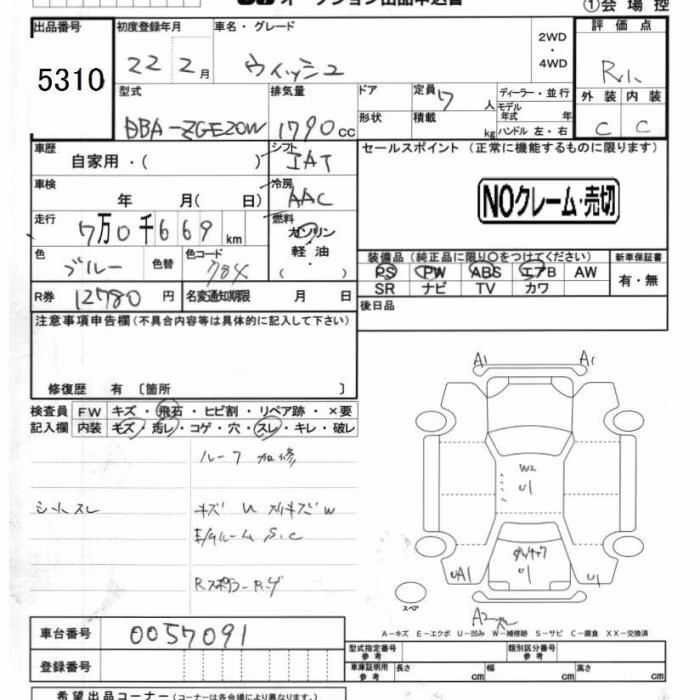 オークション出品申込書
①会場控
出品番号 5310
初度登録年月 22 2月
車名・グレード ウィッシュ
2WD・4WD
評価点 R
外装 内装
C C
型式 DBA-ZGE20W
排気量 1790 cc
ドア 定員 7人
形状 積載 kg
ディーラー・並行
モデル年式 年
ハンドル 左・右
車歴 自家用・( )
シフト IAT
車検 年 月( 日)
冷房 AAC
走行 7万0千669 km
燃料 ガソリン 軽油・( )
色 ブルー 色替 色コード 784
R券 12780 円 名変通知期限 月 日
セールスポイント(正常に機能するものに限ります)
NOクレーム・売切
装備品(純正品に限り○をつけてください) 新車保証書
PS PW ABS エアB AW 有・無
SR ナビ TV カワ
後日品
注意事項申告欄(不具合内容等は具体的に記入して下さい)
修復歴 有〔箇所 〕
検査員 FW キズ・飛石・ヒビ割・リペア跡・×要
記入欄 内装 キズ・汚レ・コゲ・穴・スレ・キレ・破レ
ルーフ 加修
シートスレ
キズ U スリキズ W
E/gルーム S.C
A1 A1
W2
U1
U1
UA1 U1
スペア
A2
A-キズ E-エクボ U-凹み W-補修跡 S-サビ C-腐食 XX-交換済
車台番号 0057091
登録番号
型式指定番号 参考 類別区分番号 参考
車庫証明用 参考 長さ cm 幅 cm 高さ cm
希望出品コーナー(コーナーは各会場により異なります。)